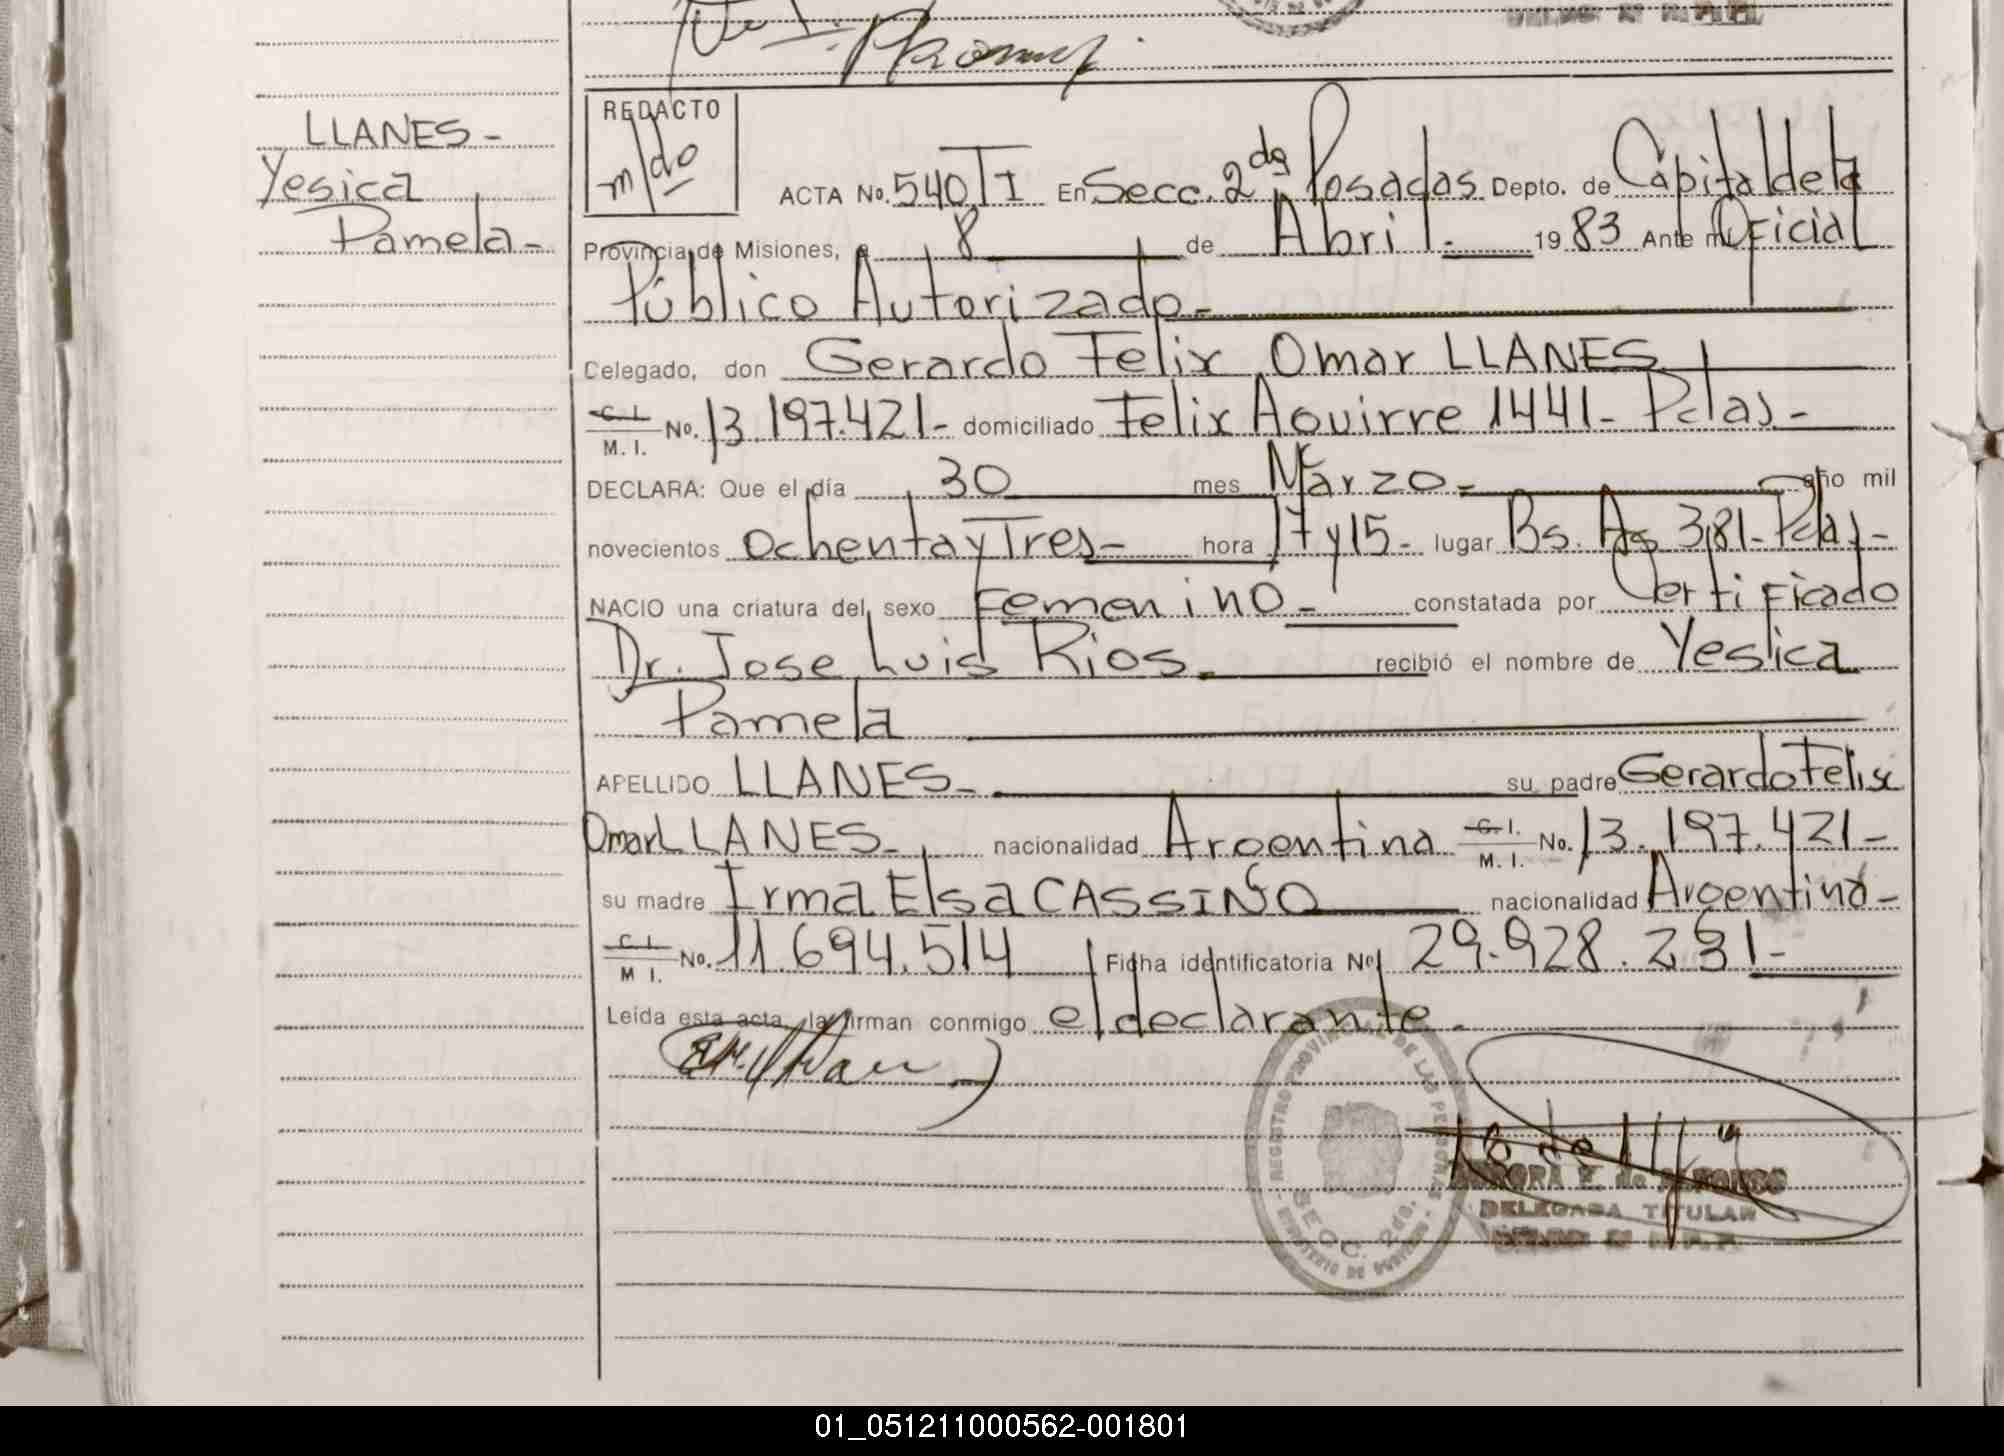 LLANES-
Yesica
Pamela-
REDACTO
m/do
ACTA No. 540 TI En Secc. 2da Posadas Depto. de Capital de la
Provincia de Misiones, a 8 de Abril.- 19 83 Ante mi Oficial
Público Autorizado-
Celegado, don Gerardo Felix Omar LLANES
C. I. / M. I. No. 13.197.421- domiciliado Felix Aguirre 1441- Pdas-
DECLARA: Que el día 30 mes Marzo- año mil
novecientos Ochenta y Tres- hora 17 y 15- lugar Bs. As 381- Pdas-
NACIO una criatura del sexo Femenino- constatada por Certificado
Dr. Jose Luis Rios.- recibió el nombre de Yesica
Pamela
APELLIDO LLANES- su padre Gerardo Felix
Omar LLANES- nacionalidad Argentina C. I. / M. I. No. 13.197.421-
su madre Irma Elsa CASSIÑO nacionalidad Argentina-
C. I. / M I. No. 11.694.514 Ficha identificatoria Nº 29.928.231-
Leida esta acta, la firman conmigo el declarante.
REGISTRO PROVINCIAL DE LAS PERSONAS
SECC. 2da.
MINISTERIO DE GOBIERNO
DELEGADA TITULAR
01_051211000562-001801